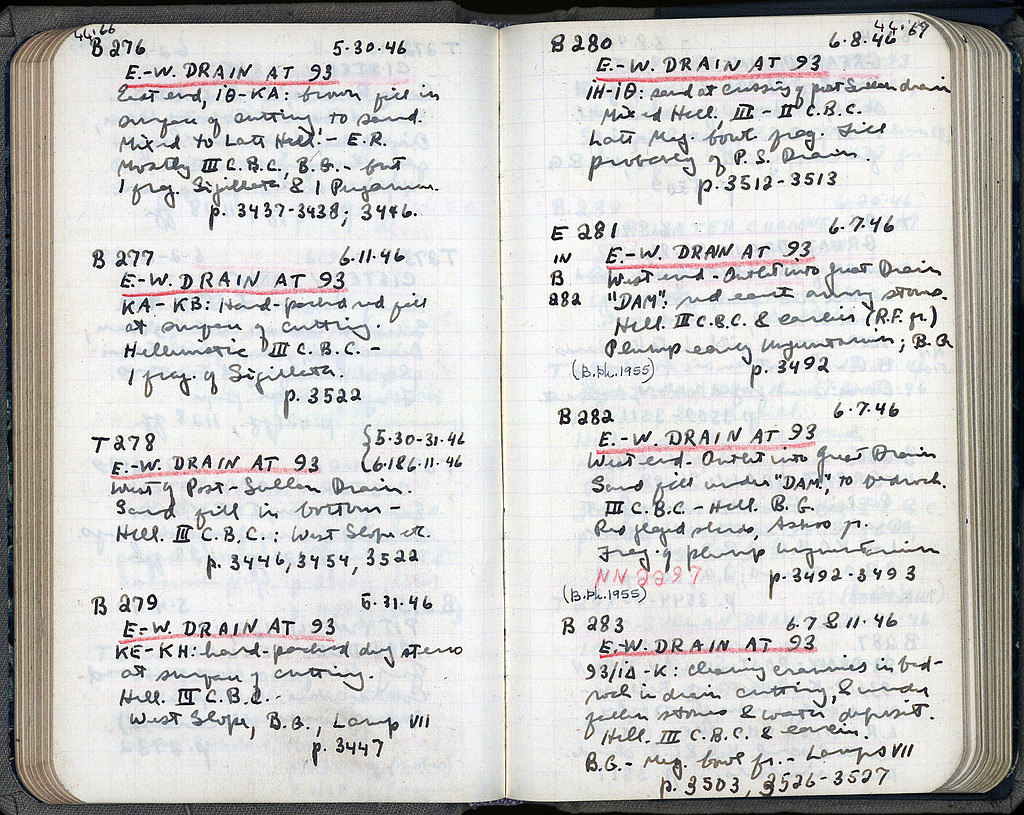 44'66
B 276 5-30-46
E.-W. DRAIN AT 93
East end, ΙΘ-ΚΑ: brown fill in
surface of cutting to sand.
Mixed to Late Hell. - E.R.
Mostly III C.B.C., B.G. - but
1 frag. Sigillata & 1 Pergamene.
p. 3437-3438; 3446.
B 277 6-11-46
E.-W. DRAIN AT 93
KA-KB: Hard-packed red fill
at surface of cutting.
Hellenistic III C.B.C. -
1 frag. of Sigillata.
p. 3522
T 278 {5-30-31-46
E.-W. DRAIN AT 93 {6-1&6-11-46
West of Post-Sullan Drain.
Sand fill in bottom -
Hell. III C.B.C.: West Slope etc.
p. 3446, 3454, 3522
B 279 5-31-46
E.-W. DRAIN AT 93
KE-KH: hard-packed dug stereo
at surface of cutting.
Hell. III C.B.C. -
West Slope, B.G., Lamp VII
p. 3447
44'67
B 280 6-8-46
E.-W. DRAIN AT 93
ΙΗ-ΙΘ: sand at crossing of post Sullan drain
Mixed Hell. III - II C.B.C.
Late Meg. bowl frag. Fill
probably of P.S. Drain.
p. 3512-3513
E 281 6-7-46
IN E.-W. DRAIN AT 93
B West end - Outlet into Great Drain
282 "DAM", red earth among stones.
Hell. III C.B.C. & earlier (R.F. fr.)
Plump early unguentarium; B.G.
(B.Ph. 1955) p. 3492
B 282 6-7-46
E.-W. DRAIN AT 93
West end - Outlet into Great Drain
Sand fill under "DAM", to bedrock.
III C.B.C. - Hell. B.G.
fr.
Frag. of plump unguentarium
NN 2297 p. 3492-3493
(B.Ph. 1955)
B 283 6-7 & 11-46
E.-W. DRAIN AT 93
93/ΙΔ-Κ: clearing crannies in bed-
rock in drain cutting, & under
fallen stones & water deposit.
Hell. III C.B.C. & earlier.
B.G. - Meg. bowl fr. - Lamps VII
p. 3503, 3526-3527